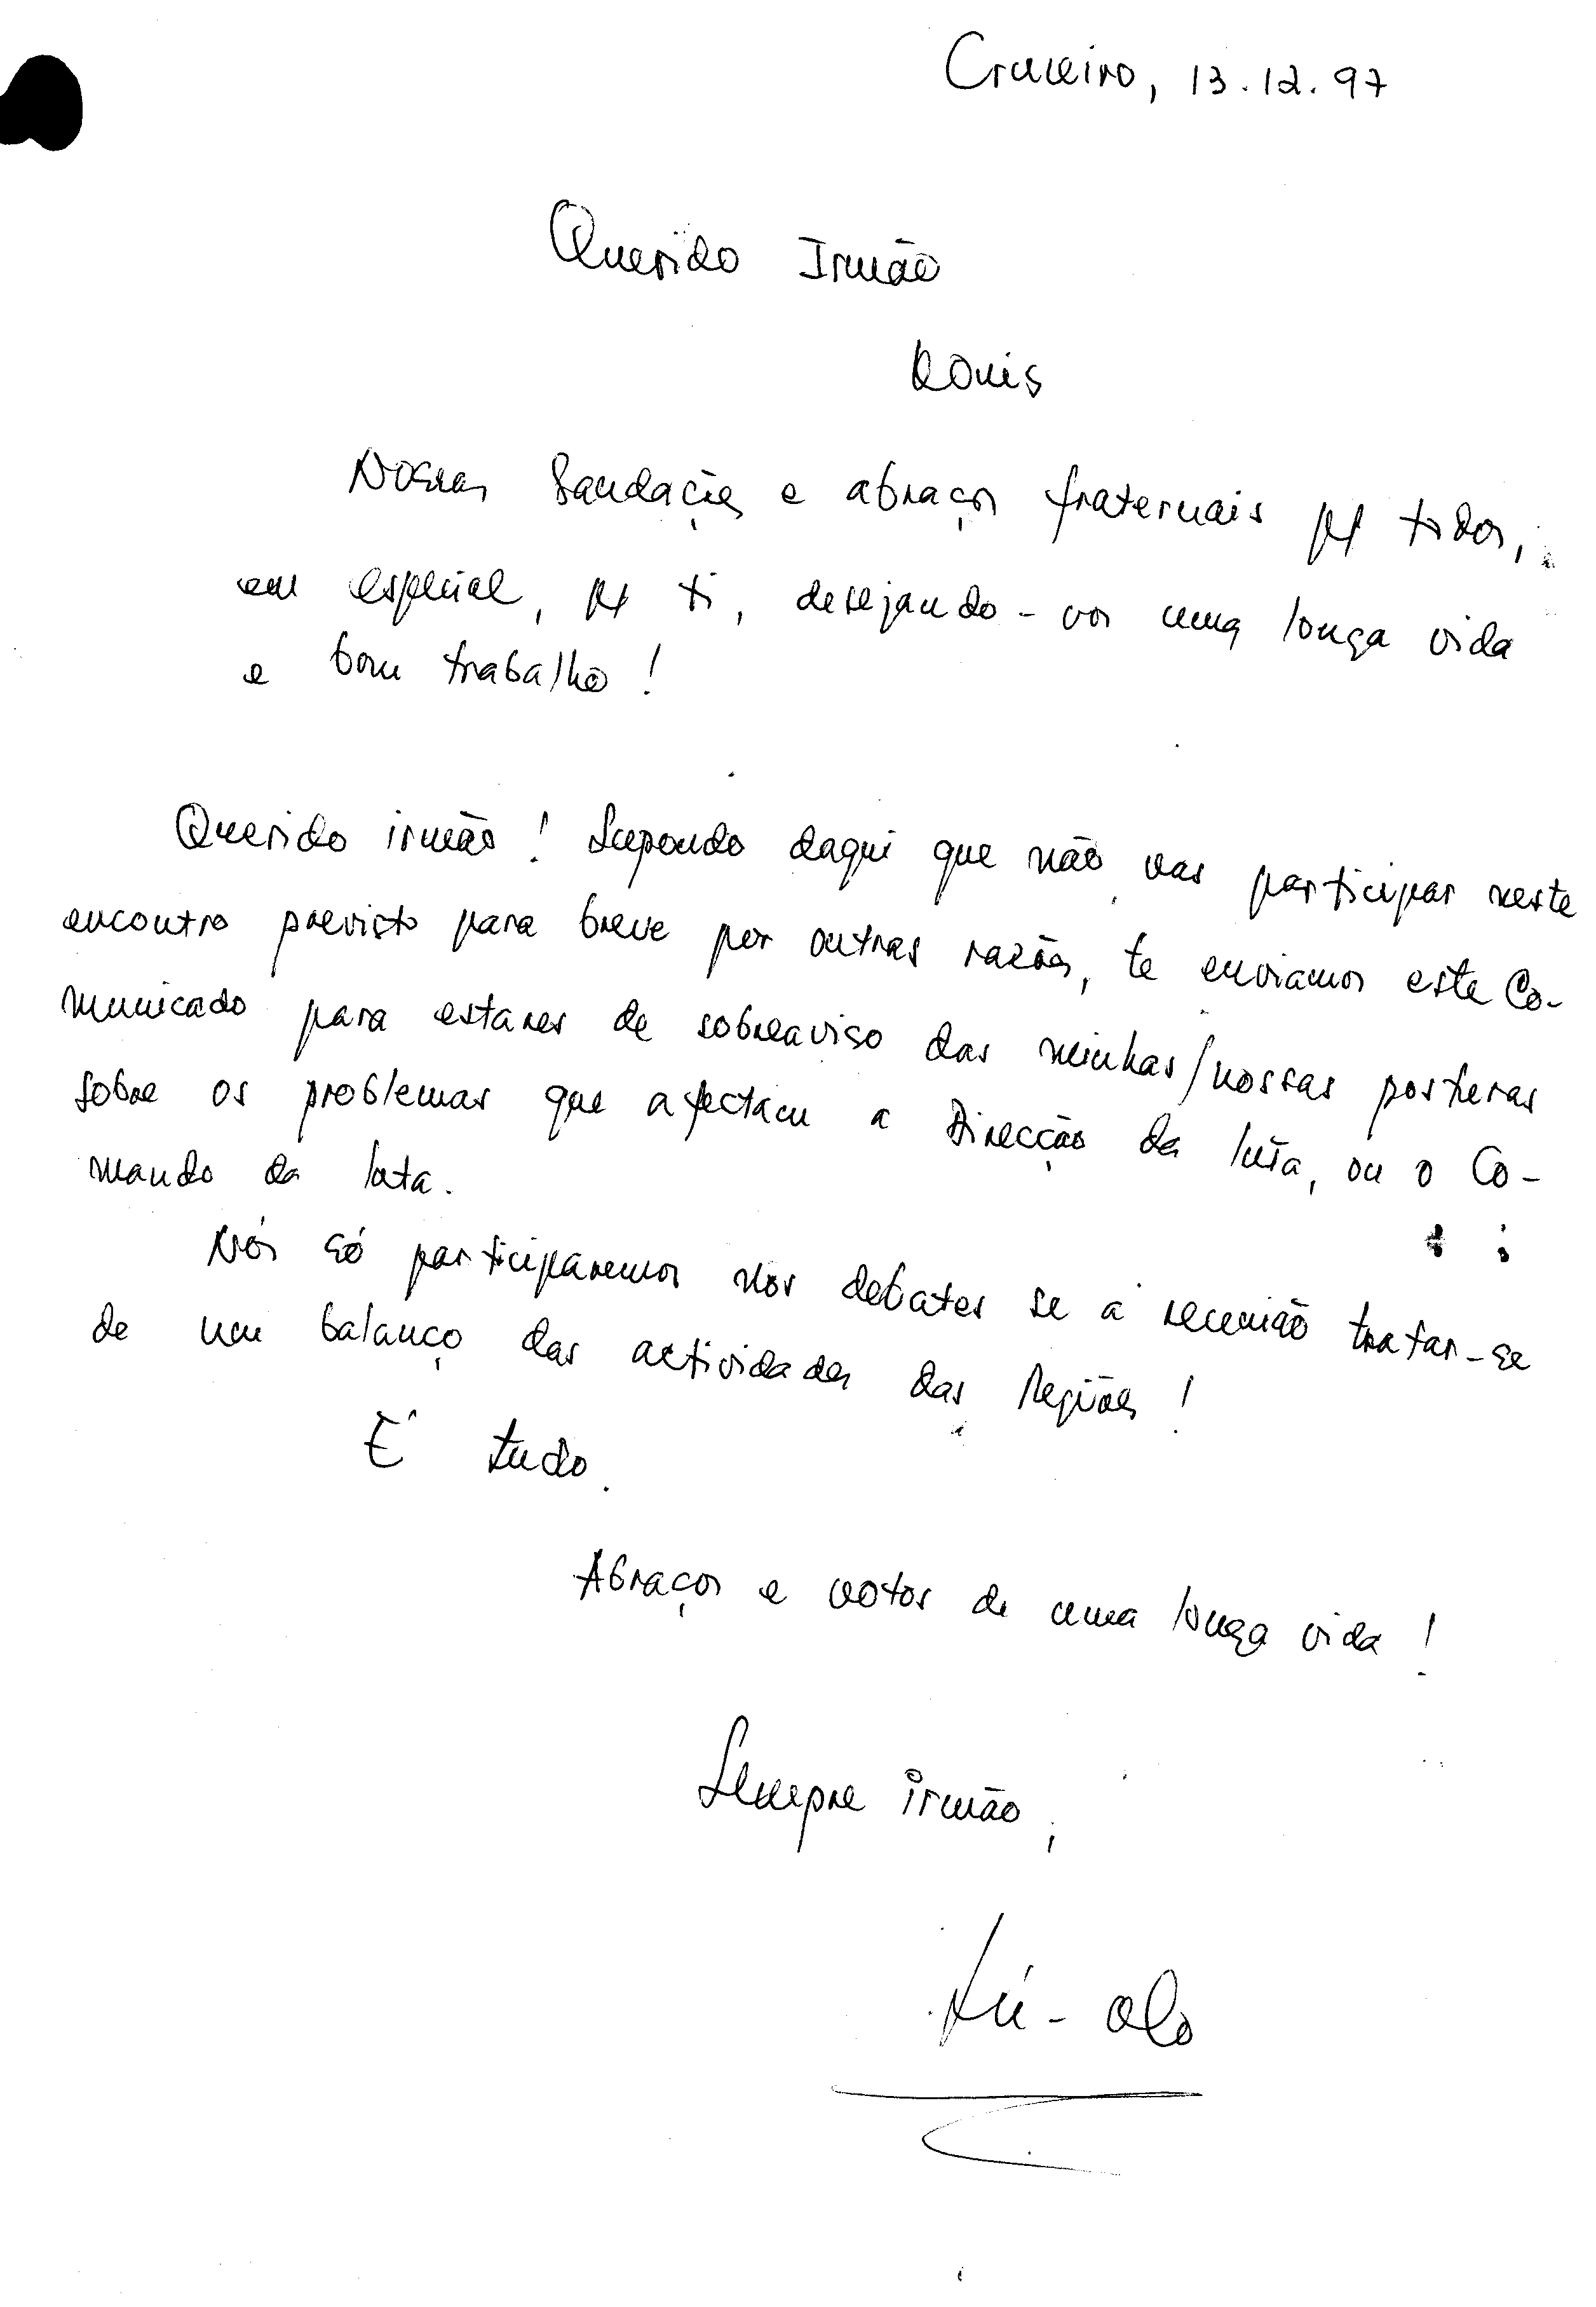 Cruzeiro, 13.12.97
Querido Irmão
Nossas Saudações e abraços fraternais p/ todos,
em especial, p/ ti, desejando-vos uma longa vida
e bom trabalho!
Querido irmão! Supondo daqui que não vas participar neste
encontro previsto para breve por outras razões, te enviamos este Co-
municado para estares de sobreaviso das minhas/nossas posturas
sobre os problemas que afectam a Direcção da luta, ou o Co-
mando da luta.
Nós só participaremos nos debates se a reunião tratar-se
de um balanço das actividades das Regiões!
É tudo.
Abraços e votos de uma longa vida!
Sempre irmão,
Lú-olo